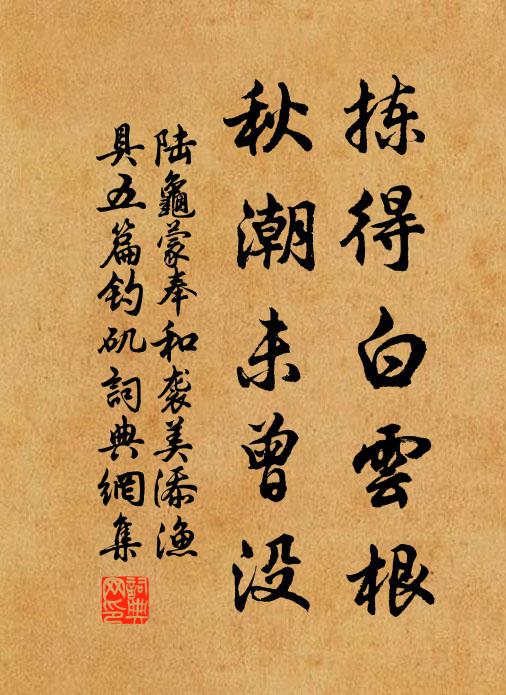 拣得白雲根
秋潮未曾没
陆龜蒙奉和袭美添漁
具五篇钓矶詞典網集
詞典
网印